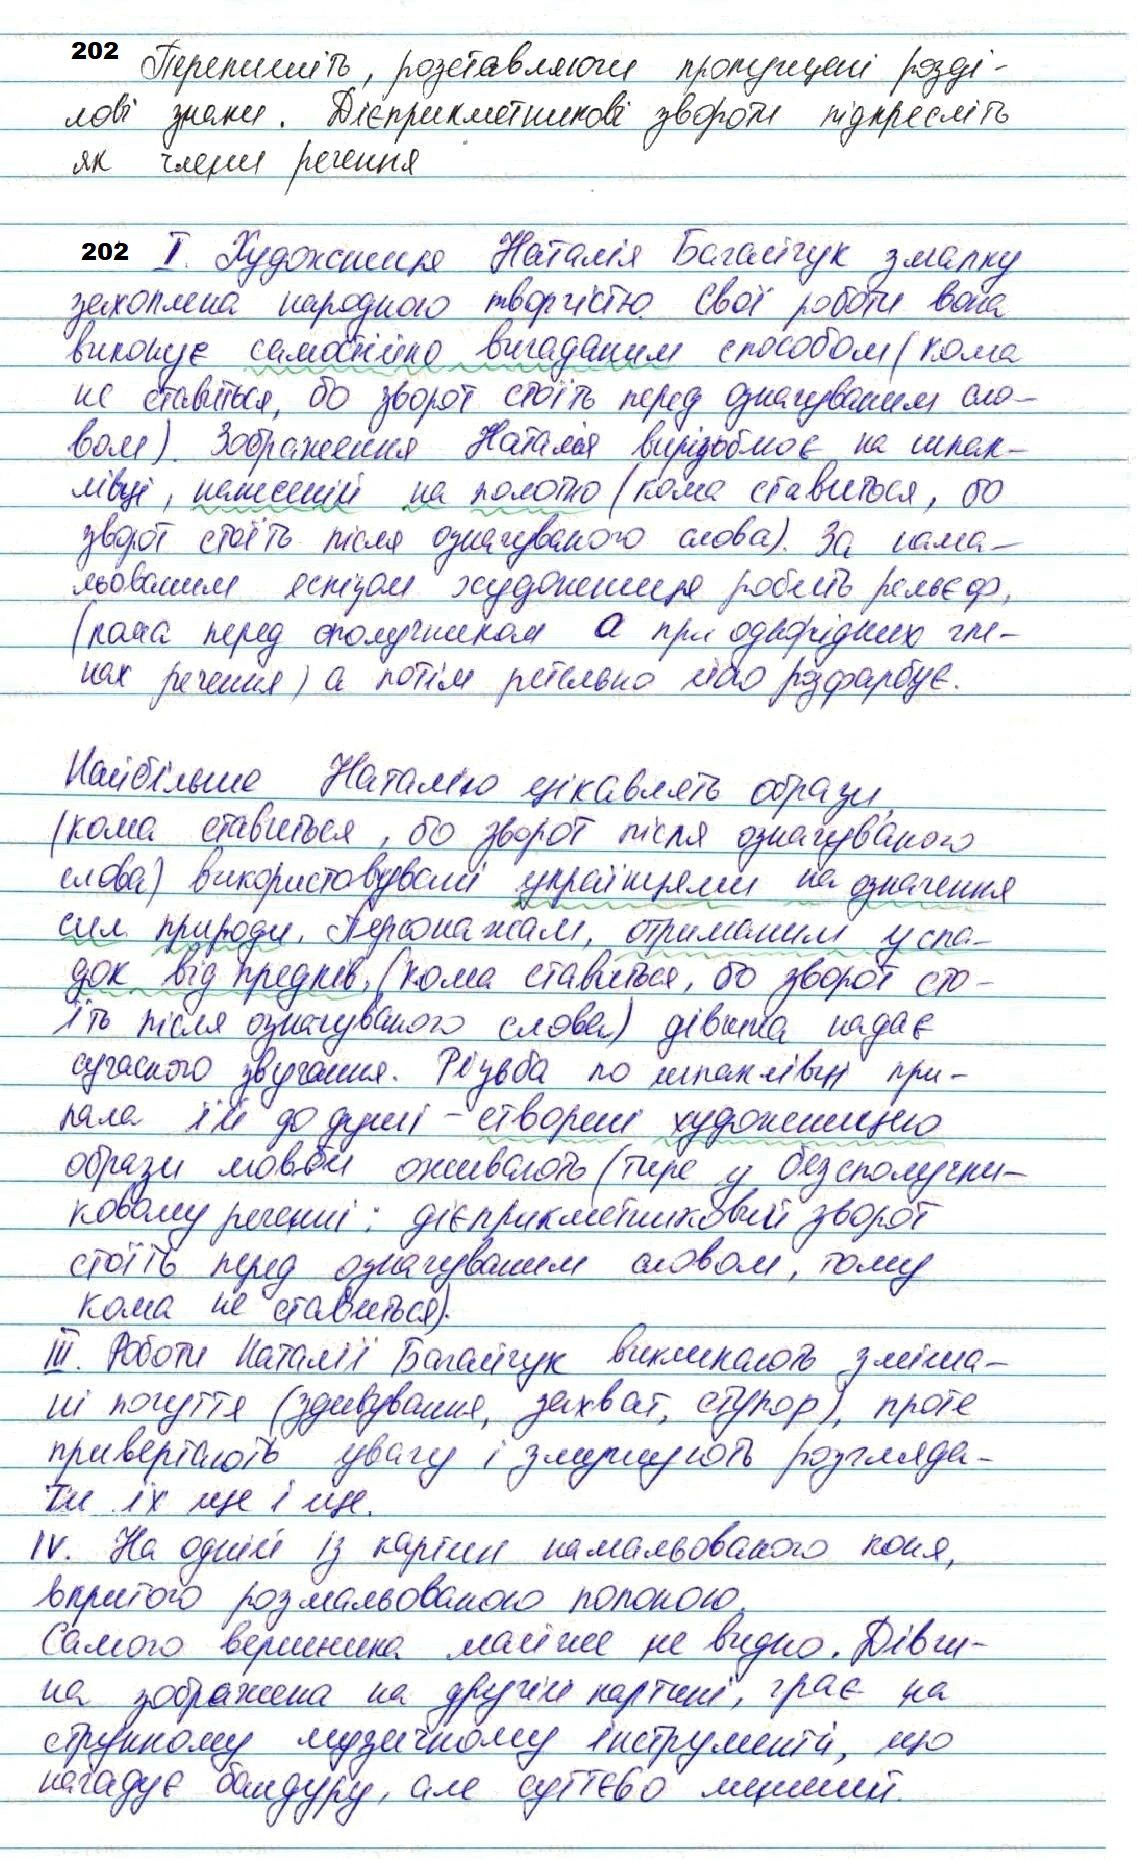 202 Перепишіть, розставляючи пропущені розді-
лові знаки. Дієприкметникові звороти підкресліть
як члени речення
202 I. Художниця Наталія Багайчук змалку
захоплена народною творчістю. Свої роботи вона
виконує самостійно вигаданим способом (кома
не ставиться, бо зворот стоїть перед означуваним сло-
вом). Зображення Наталія вирізьблює на шпак-
лівці, нанесеній на полотно (кома ставиться, бо
зворот стоїть після означуваного слова). За нама-
льованим ескізом художниця робить рельєф,
(кома перед сполучником а при однорідних чле-
нах речення) а потім ретельно його розфарбує.
Найбільше Наталію цікавлять образи,
(кома ставиться, бо зворот після означуваного
слова) використовувані українцями на означення
сил природи. Персонажам, отриманим у спа-
док від предків, (кома ставиться, бо зворот сто-
їть після означуваного слова) дівчина надає
сучасного звучання. Різьба по шпаклівці при-
пала їй до душі - створені художницею
образи мовби оживають (тире у безсполучни-
ковому реченні; дієприкметниковий зворот
стоїть перед означуваним словом, тому
кома не ставиться).
III. Роботи Наталії Багайчук викликають зміша-
ні почуття (здивування, захват, ступор), проте
привертають увагу і змушують розгляда-
ти їх ще і ще.
IV. На одній із картин намальованого коня,
вкритого розмальованою попоною.
Самого вершника майже не видно. Дівчи-
на зображена на другій картині, грає на
струнному музичному інструменті, що
нагадує бандуру, але суттєво менший.